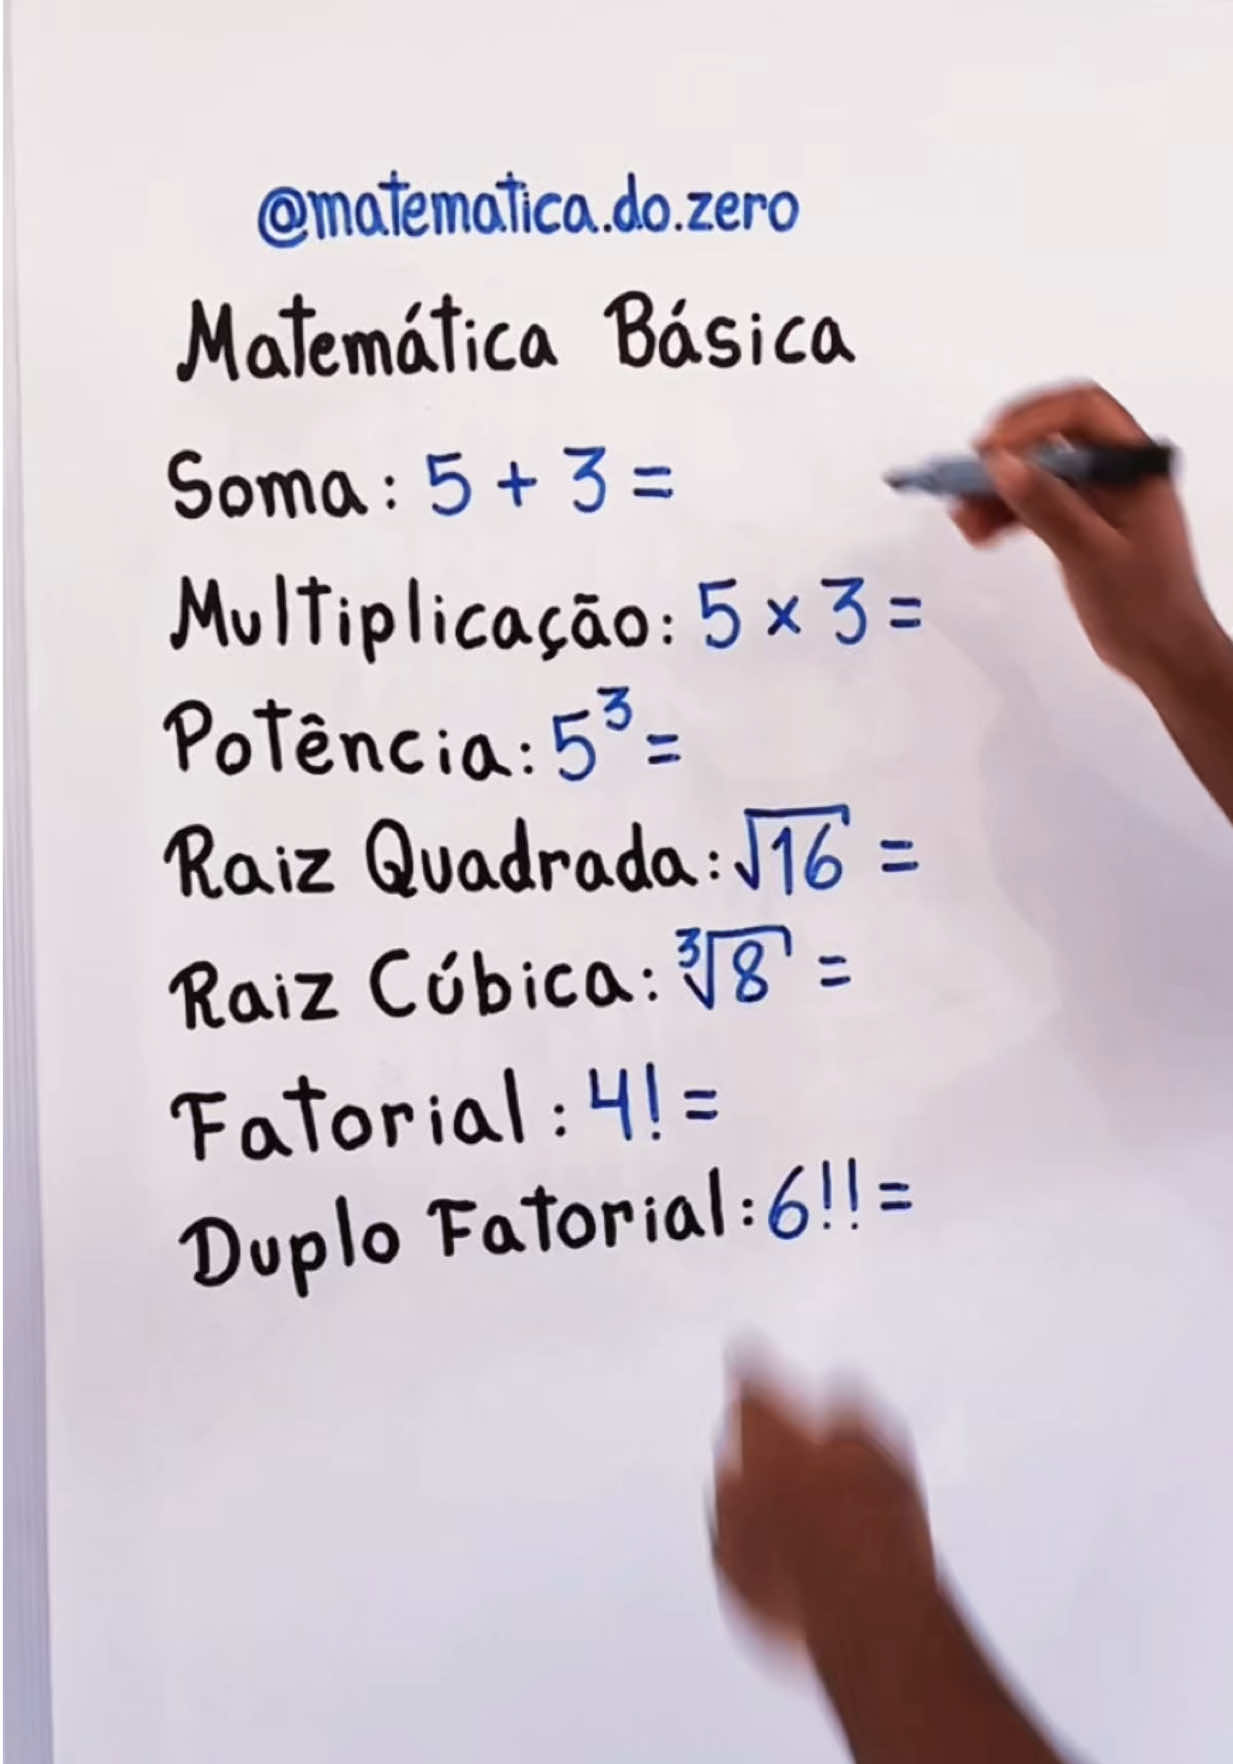 @matematica.do.zero
Matemática Básica
Soma: 5 + 3 =
Multiplicação: 5 × 3 =
Potência: 5³ =
Raiz Quadrada: √16 =
Raiz Cúbica: ³√8 =
Fatorial: 4! =
Duplo Fatorial: 6!! =